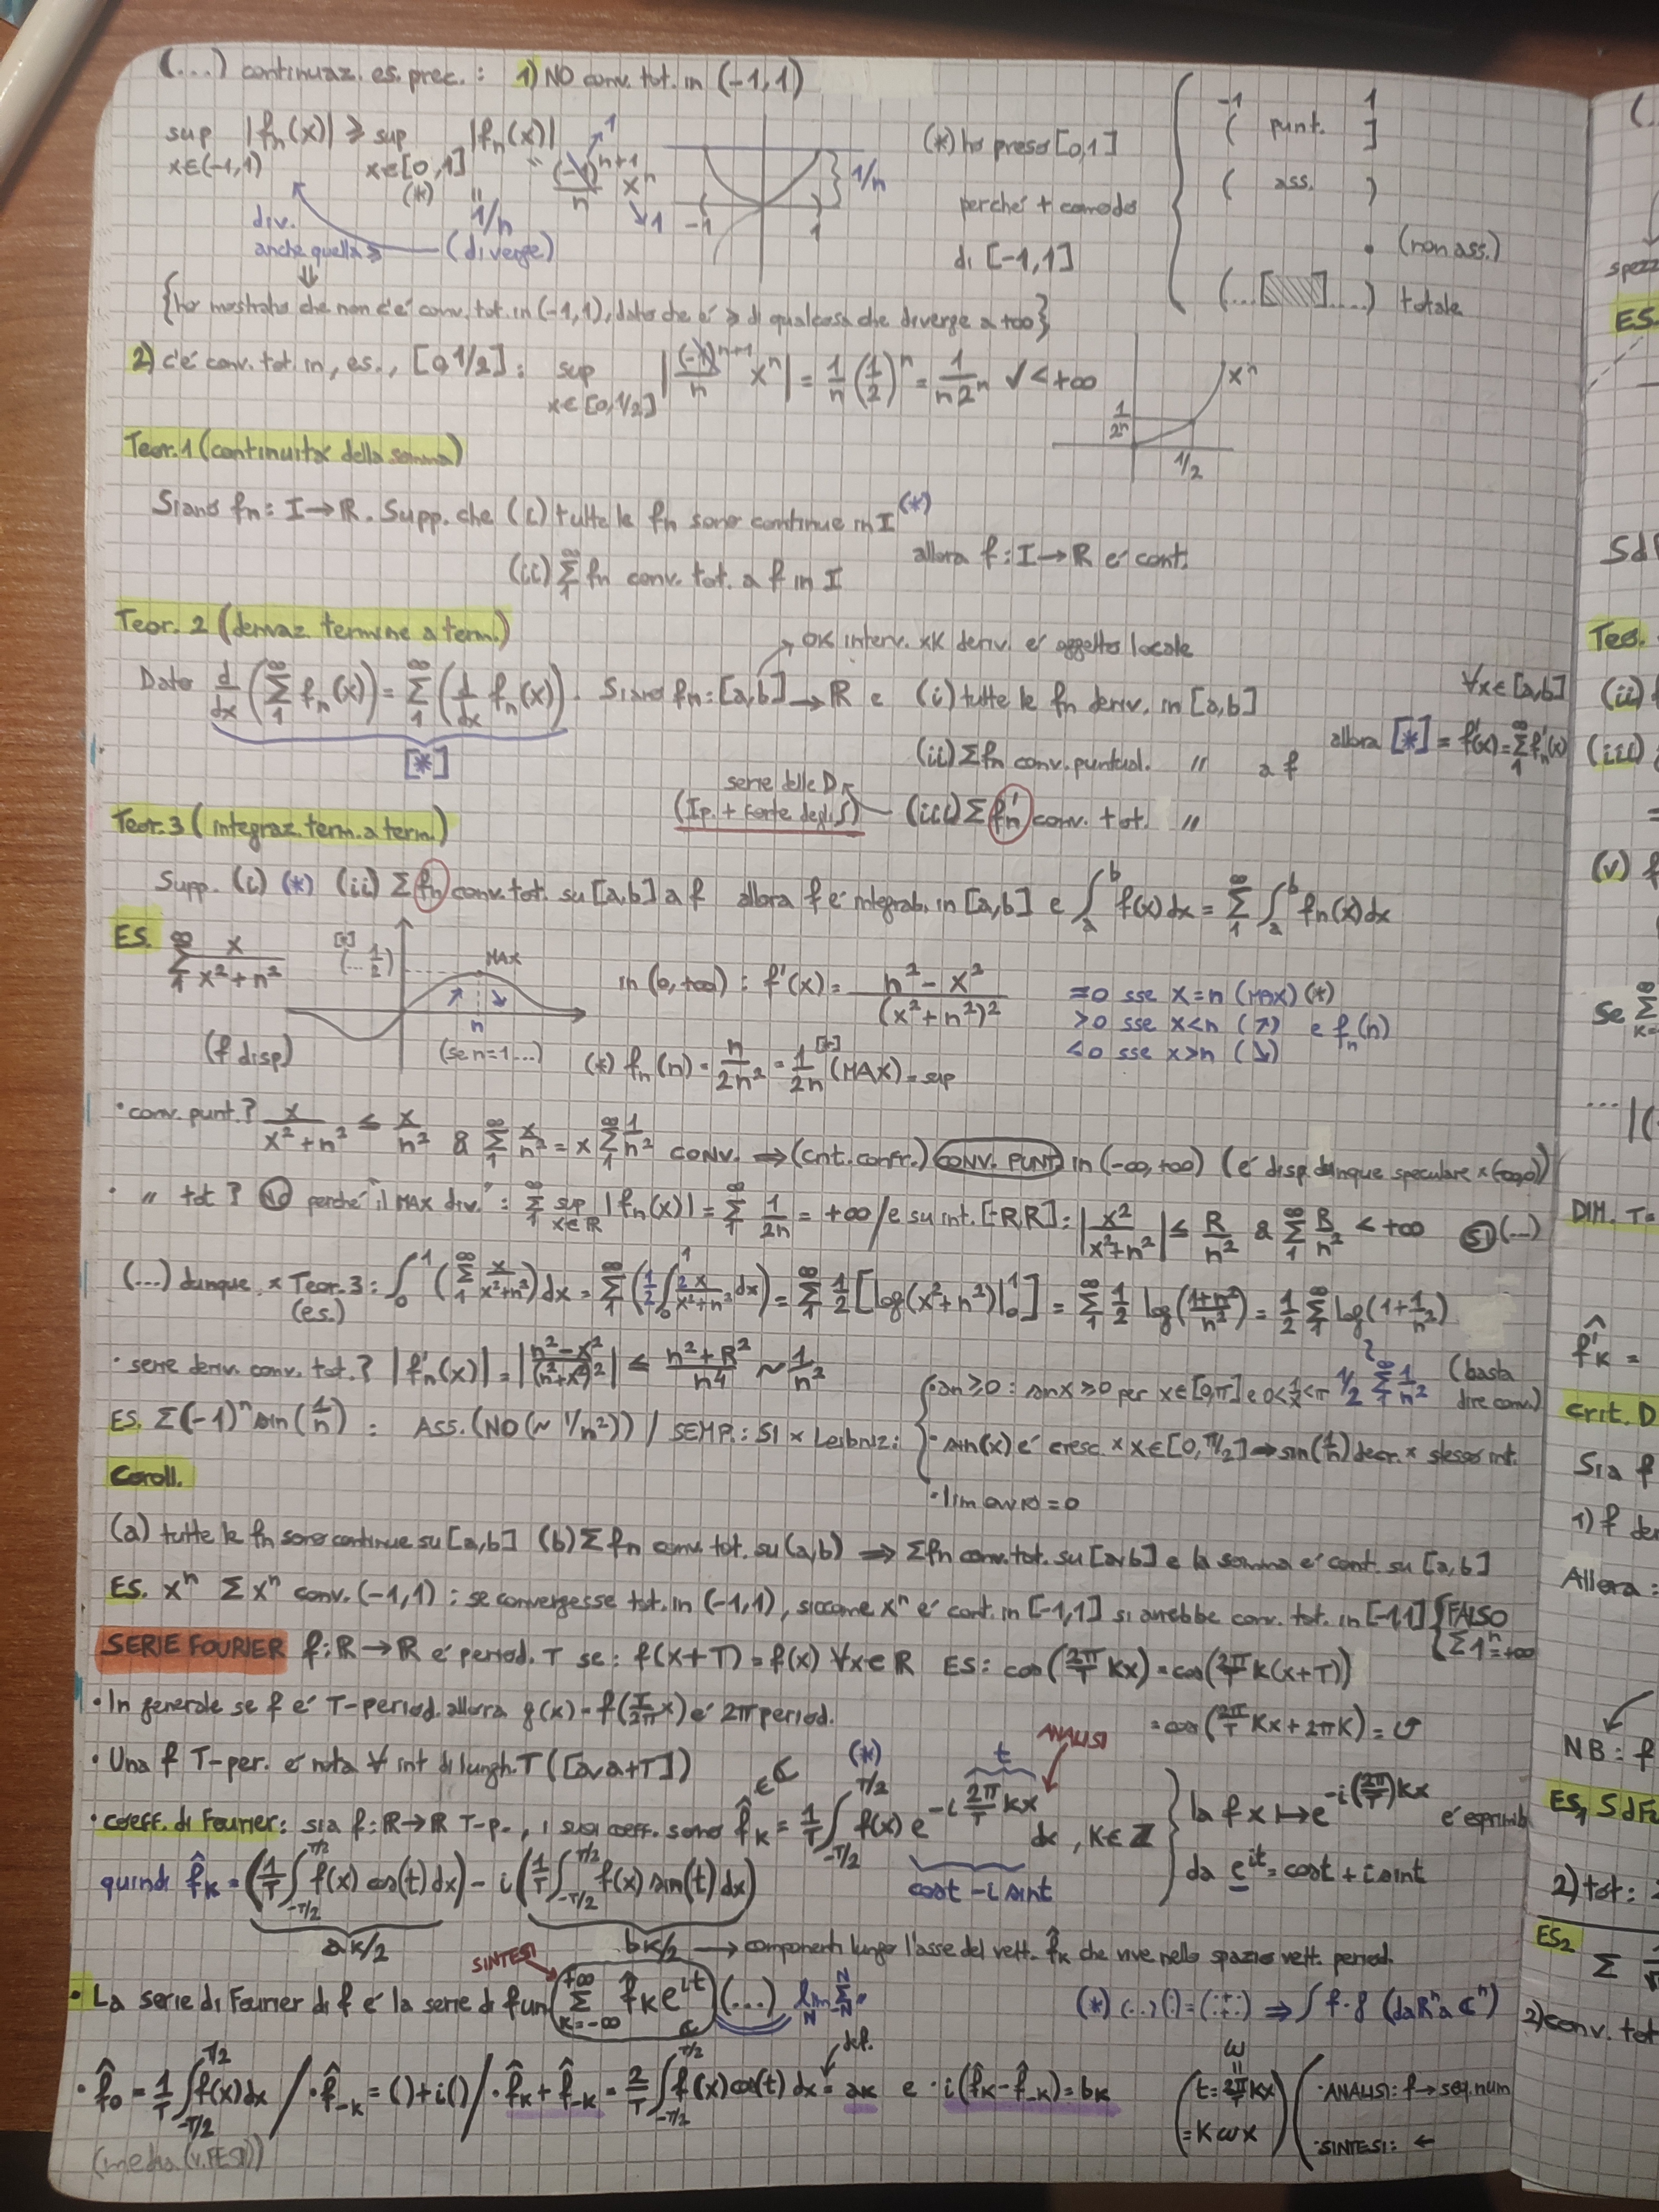 (...) continuaz. es. prec. : 1) NO conv. tot. in (-1,1)
sup |fn(x)| ≥ sup |fn(x)|
x∈(-1,1) x∈[0,1]
(*) " 1/n
(-1)^(n+1)/n x^n → 1
↘ 1
-1 1 } 1/n
(*) ho preso [0,1]
perché + comodo
di [-1,1]
div.
anche quella ≥ (diverge)
⇓
{ho mostrato che non c'é conv. tot. in (-1,1), dato che é ≥ di qualcosa che diverge a +∞}
-1 1
( punt. ]
( ass. )
• (non ass.)
(...[ ]....) totale
2) c'é conv. tot. in, es., [0,1/2] : sup x∈[0,1/2] |(-1)^(n+1)/n x^n| = 1/n (1/2)^n = 1/(n2^n) ✓ < +∞
x^n
1/2^n
1/2
Teor. 1 (continuitá della somma)
Siano fn : I→ℝ. Supp. che (i) tutte le fn sono continue in I (*)
(ii) Σ_1^∞ fn conv. tot. a f in I
allora f : I→ℝ é cont.
Teor. 2 (derivaz termine a term.)
→ OK interv. xk deriv. é oggetto locale
Dato d/dx (Σ_1^∞ fn(x)) = Σ_1^∞ (d/dx fn(x)). Siano fn : [a,b]→ℝ e (i) tutte le fn deriv. in [a,b]
[*]
(ii) Σfn conv. puntual. " a f
∀x∈[a,b]
allora [*] = f'(x) = Σ_1^∞ f'n(x)
serie delle D
(Ip. + forte degli ∫) (iii) Σ f'n conv. tot. "
Teor. 3 (integraz. term. a term.)
Supp. (i) (*) (ii) Σ fn conv. tot. su [a,b] a f allora f é integrab. in [a,b] e ∫_a^b f(x)dx = Σ_1^∞ ∫_a^b fn(x)dx
ES. Σ_1^∞ x/(x²+n²)
(... 1/2)
MAX
n
(f disp)
(se n=1...)
in (0,+∞) : f'(x) = (n²-x²)/(x²+n²)²
=0 sse x=n (MAX) (*)
>0 sse x<n (↗) e fn(n)
<0 sse x>n (↘)
(*) fn(n) = n/2n² = 1/2n (MAX) = sup
• conv. punt.? x/(x²+n²) ≤ x/n² & Σ_1^∞ x/n² = x Σ_1^∞ 1/n² conv. ⇒ (crit. confr.) CONV. PUNT in (-∞,+∞) (é disp. dunque speculare x (-∞,0))
• " tot? NO perché "il MAX div." : Σ_1^∞ sup x∈ℝ |fn(x)| = Σ_1^∞ 1/2n = +∞ / e su int. [-R,R] : |x²/(x²+n²)| ≤ R/n² & Σ_1^∞ R/n² < +∞ SI (...)
(...) dunque, x Teor. 3 : ∫_0^1 (Σ_1^∞ x/(x²+n²)) dx = Σ_1^∞ (1/2 ∫_0^1 2x/(x²+n²) dx) = Σ_1^∞ 1/2 [log(x²+n²)|_0^1] = Σ_1^∞ 1/2 log((1+n²)/n²) = 1/2 Σ_1^∞ log(1+1/n²)
(es.)
~ 1/2 Σ_1^∞ 1/n² (basta
dire conv.)
• serie deriv. conv. tot.? |f'n(x)| = |(n²-x²)/(n²+x²)²| ≤ (n²+R²)/n⁴ ~ 1/n²
ES. Σ(-1)^n sin(1/n) : ASS. (NO (~ 1/n²)) / SEMP.: SI x Leibniz :
• an ≥ 0 : sin x ≥ 0 per x∈[0,π] e 0<1/x<π
• sin(x) é cresc. x x∈[0,π/2] ⇒ sin(1/n) decr. x stesso int.
• lim ovvio = 0
Coroll.
(a) tutte le fn sono continue su [a,b] (b) Σ fn conv. tot. su (a,b) ⇒ Σfn conv. tot. su [a,b] e la somma é cont. su [a,b]
ES. x^n Σ x^n conv. (-1,1) : se convergesse tot. in (-1,1), siccome x^n é cont. in [-1,1] si avrebbe conv. tot. in [-1,1] {FALSO
Σ 1^n = +∞
SERIE FOURIER f: ℝ→ℝ é period. T se : f(x+T) = f(x) ∀x∈ℝ ES : cos(2π/T Kx) = cos(2π/T K(x+T))
= cos(2π/T Kx + 2πK) = ↺
• In generale se f é T-period. allora g(x) = f(T/2π x) é 2π period.
• Una f T-per. é nota ∀ int di lungh. T ([a,a+T])
• coeff. di Fourier : sia f : ℝ→ℝ T-p., i suoi coeff. sono f̂K = 1/T ∫_-T/2^T/2 f(x) e^(-i 2π/T Kx) dx , K∈ℤ
∈ℂ (*) t ANALISI
cos t - i sin t
la f x ↦ e^(-i(2π/T)Kx) é esprimib
da e^(it) = cos t + i sin t
quindi f̂K = (1/T ∫_-T/2^T/2 f(x) cos(t) dx) - i (1/T ∫_-T/2^T/2 f(x) sin(t) dx)
aK/2 bK/2 → componenti lungo l'asse del vett. f̂K che vive nello spazio vett. period.
SINTESI
• La serie di Fourier di f é la serie di fun Σ_K=-∞^+∞ f̂K e^(it) (...) lim_N Σ_-N^N
(*) (...)(:) = (:+:) ⇒ ∫ f·g (da ℝ^n a ℂ^n)
• f̂0 = 1/T ∫_-T/2^T/2 f(x)dx / • f̂-K = ( )+i( ) / • f̂K + f̂-K = 2/T ∫_-T/2^T/2 f(x) cos(t) dx = aK e • i(f̂K - f̂-K) = bK
def.
(media (v. FESR))
ω
(t = 2π/T Kx
= Kωx)
• ANALISI : f → seq. num
• SINTESI : ←
(.
spezz
ES.
Sdf
Teo.
(ii) f
(iii)
(v) f
Se Σ
... |(
DIM. T=
f̂'K =
crit. D
Sia f
1) f der
Allora :
NB : f
ES1 SdFo
2) tot :
ES2
Σ
2) conv. tot